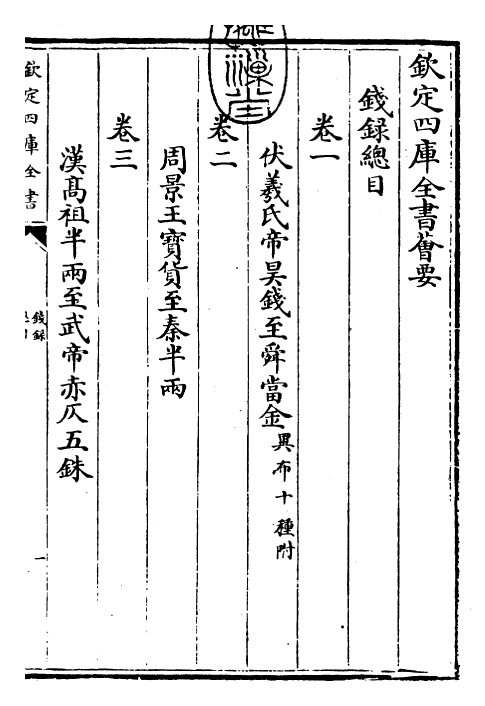 欽定四庫全書薈要
錢録總目
卷一
伏羲氏帝昊錢至舜當金異布十種附
卷二
周景王寶貨至秦半兩
卷三
漢髙祖半兩至武帝赤仄五銖
欽定四庫全書
錢録
一